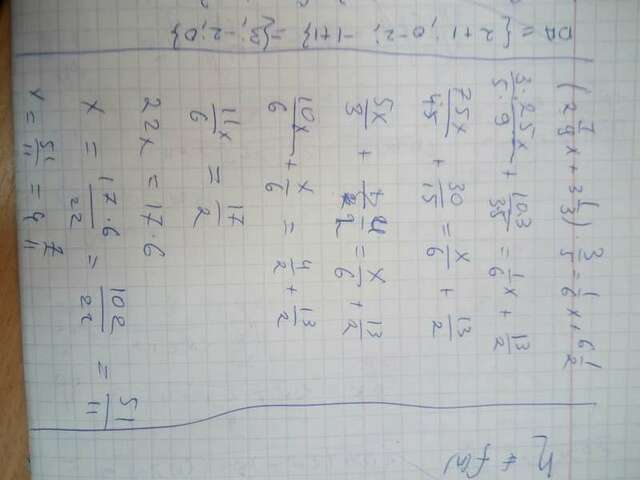 DA = {2+1; 0-2; -1+1} = {3; -2; 0}
(2 7/9 x + 3 1/3) · 3/5 = 1/6 x + 6 1/2
3·25x/5·9 + 10·3/35 = 1/6 x + 13/2
75x/45 + 30/15 = x/6 + 13/2
5x/3 + 4/2 = x/6 + 13/2
10x/6 + x/6 = 4/2 + 13/2
11x/6 = 17/2
22x = 17·6
x = 17·6/22 = 102/22 = 51/11
x = 51/11 = 4 7/11